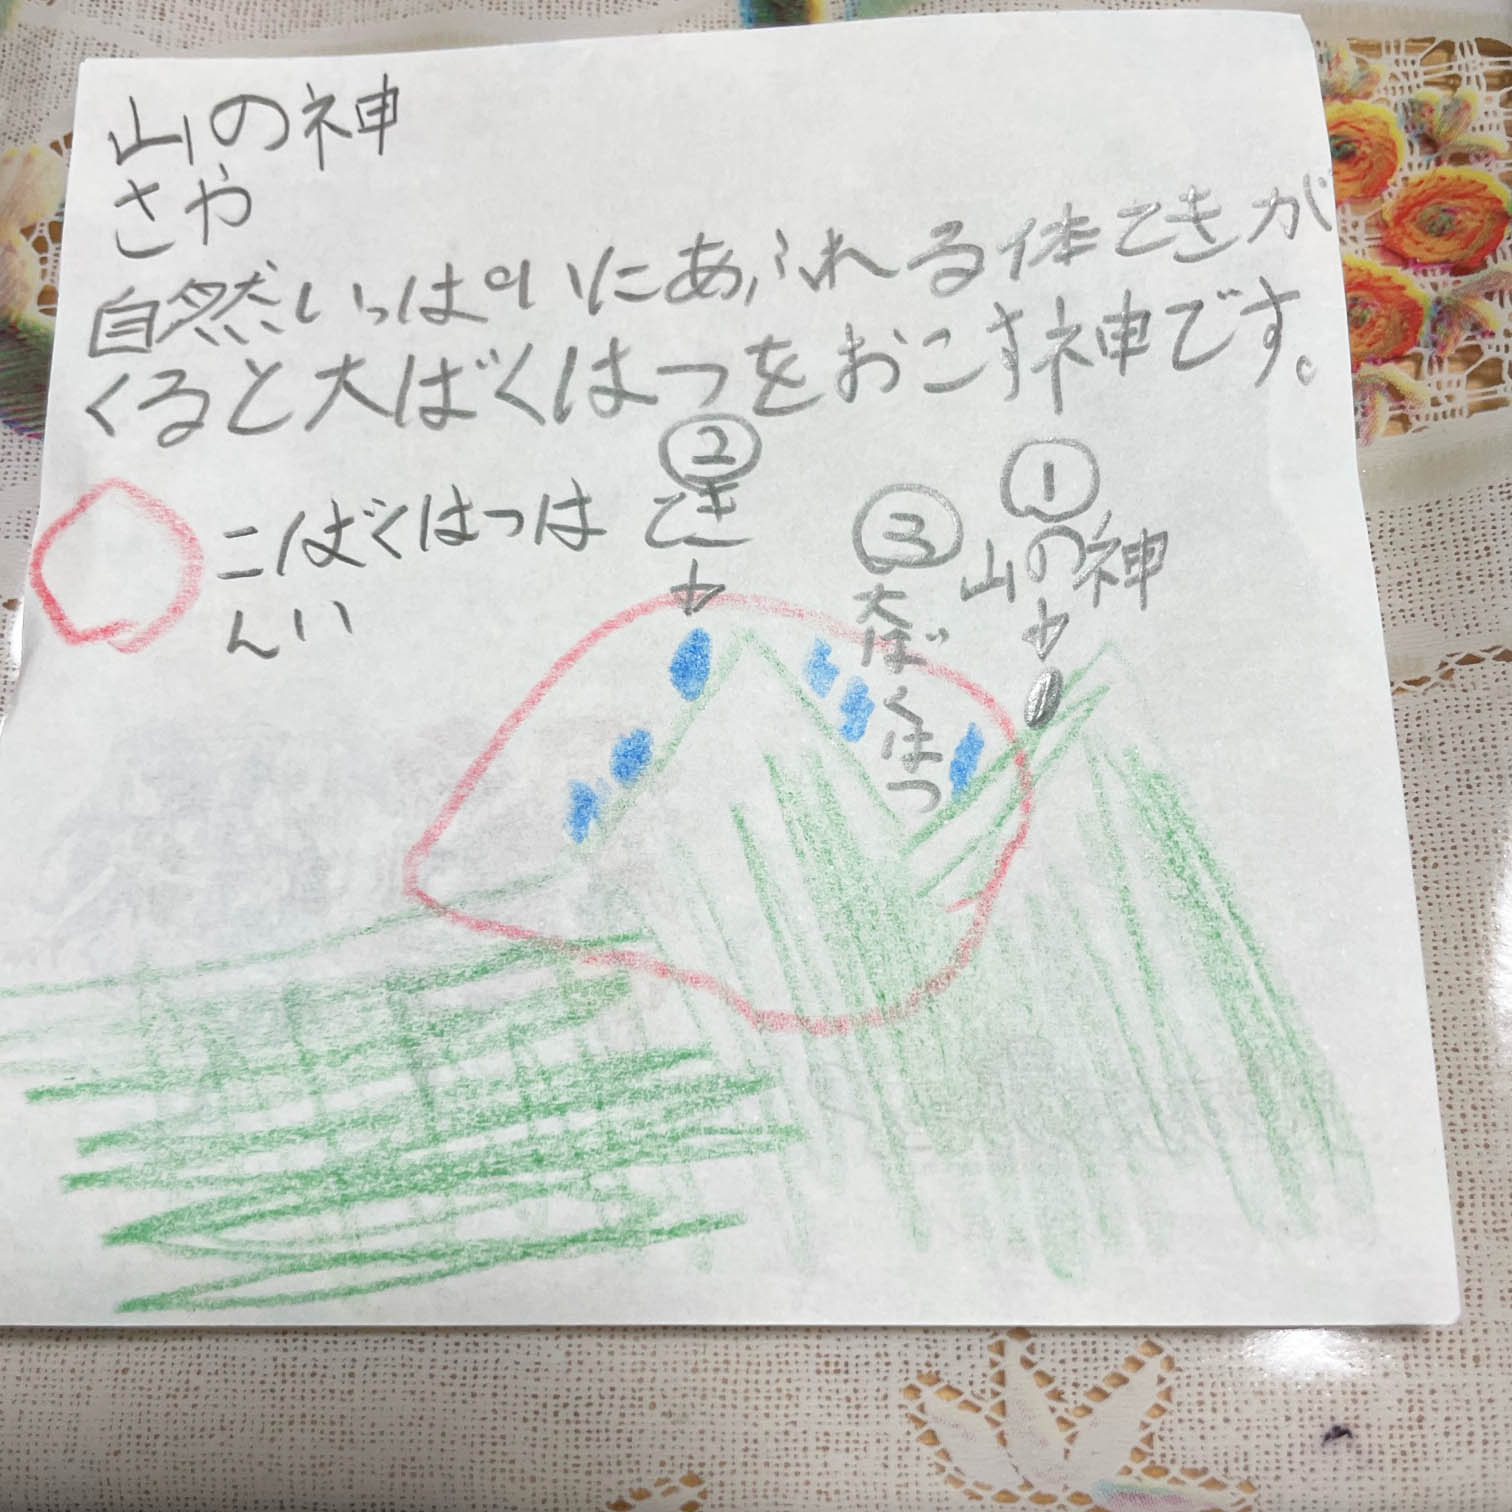 山の神
さや
自然いっぱいにあふれる体てきが
くると大ばくはつをおこす神です。
こばくはつは
んい
②
てき
③
大ばくはつ
①
山の神